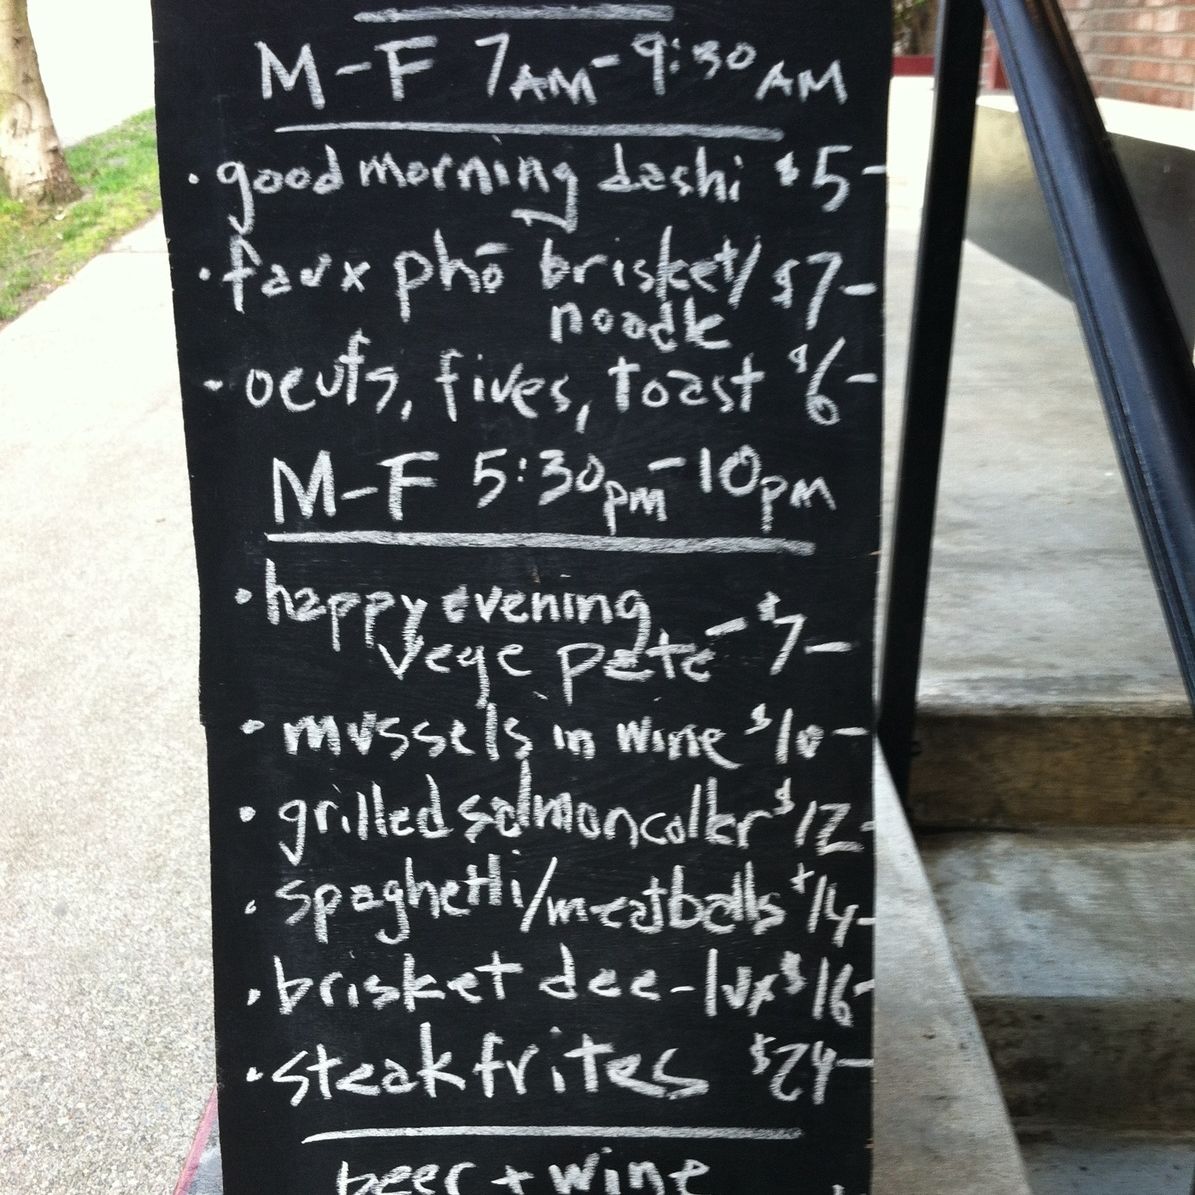 M-F 7AM-9:30AM
• good morning dashi $5-
• faux phō brisket/ $7-
noodle
• oeufs, fives, toast $6-
M-F 5:30pm-10pm
• happy evening
vege pate - $7-
• mussels in wine $10-
• grilled salmon coller $12-
• spaghetti/meatballs $14-
• brisket dee-lux $16-
• steak frites $24-
beer + wine